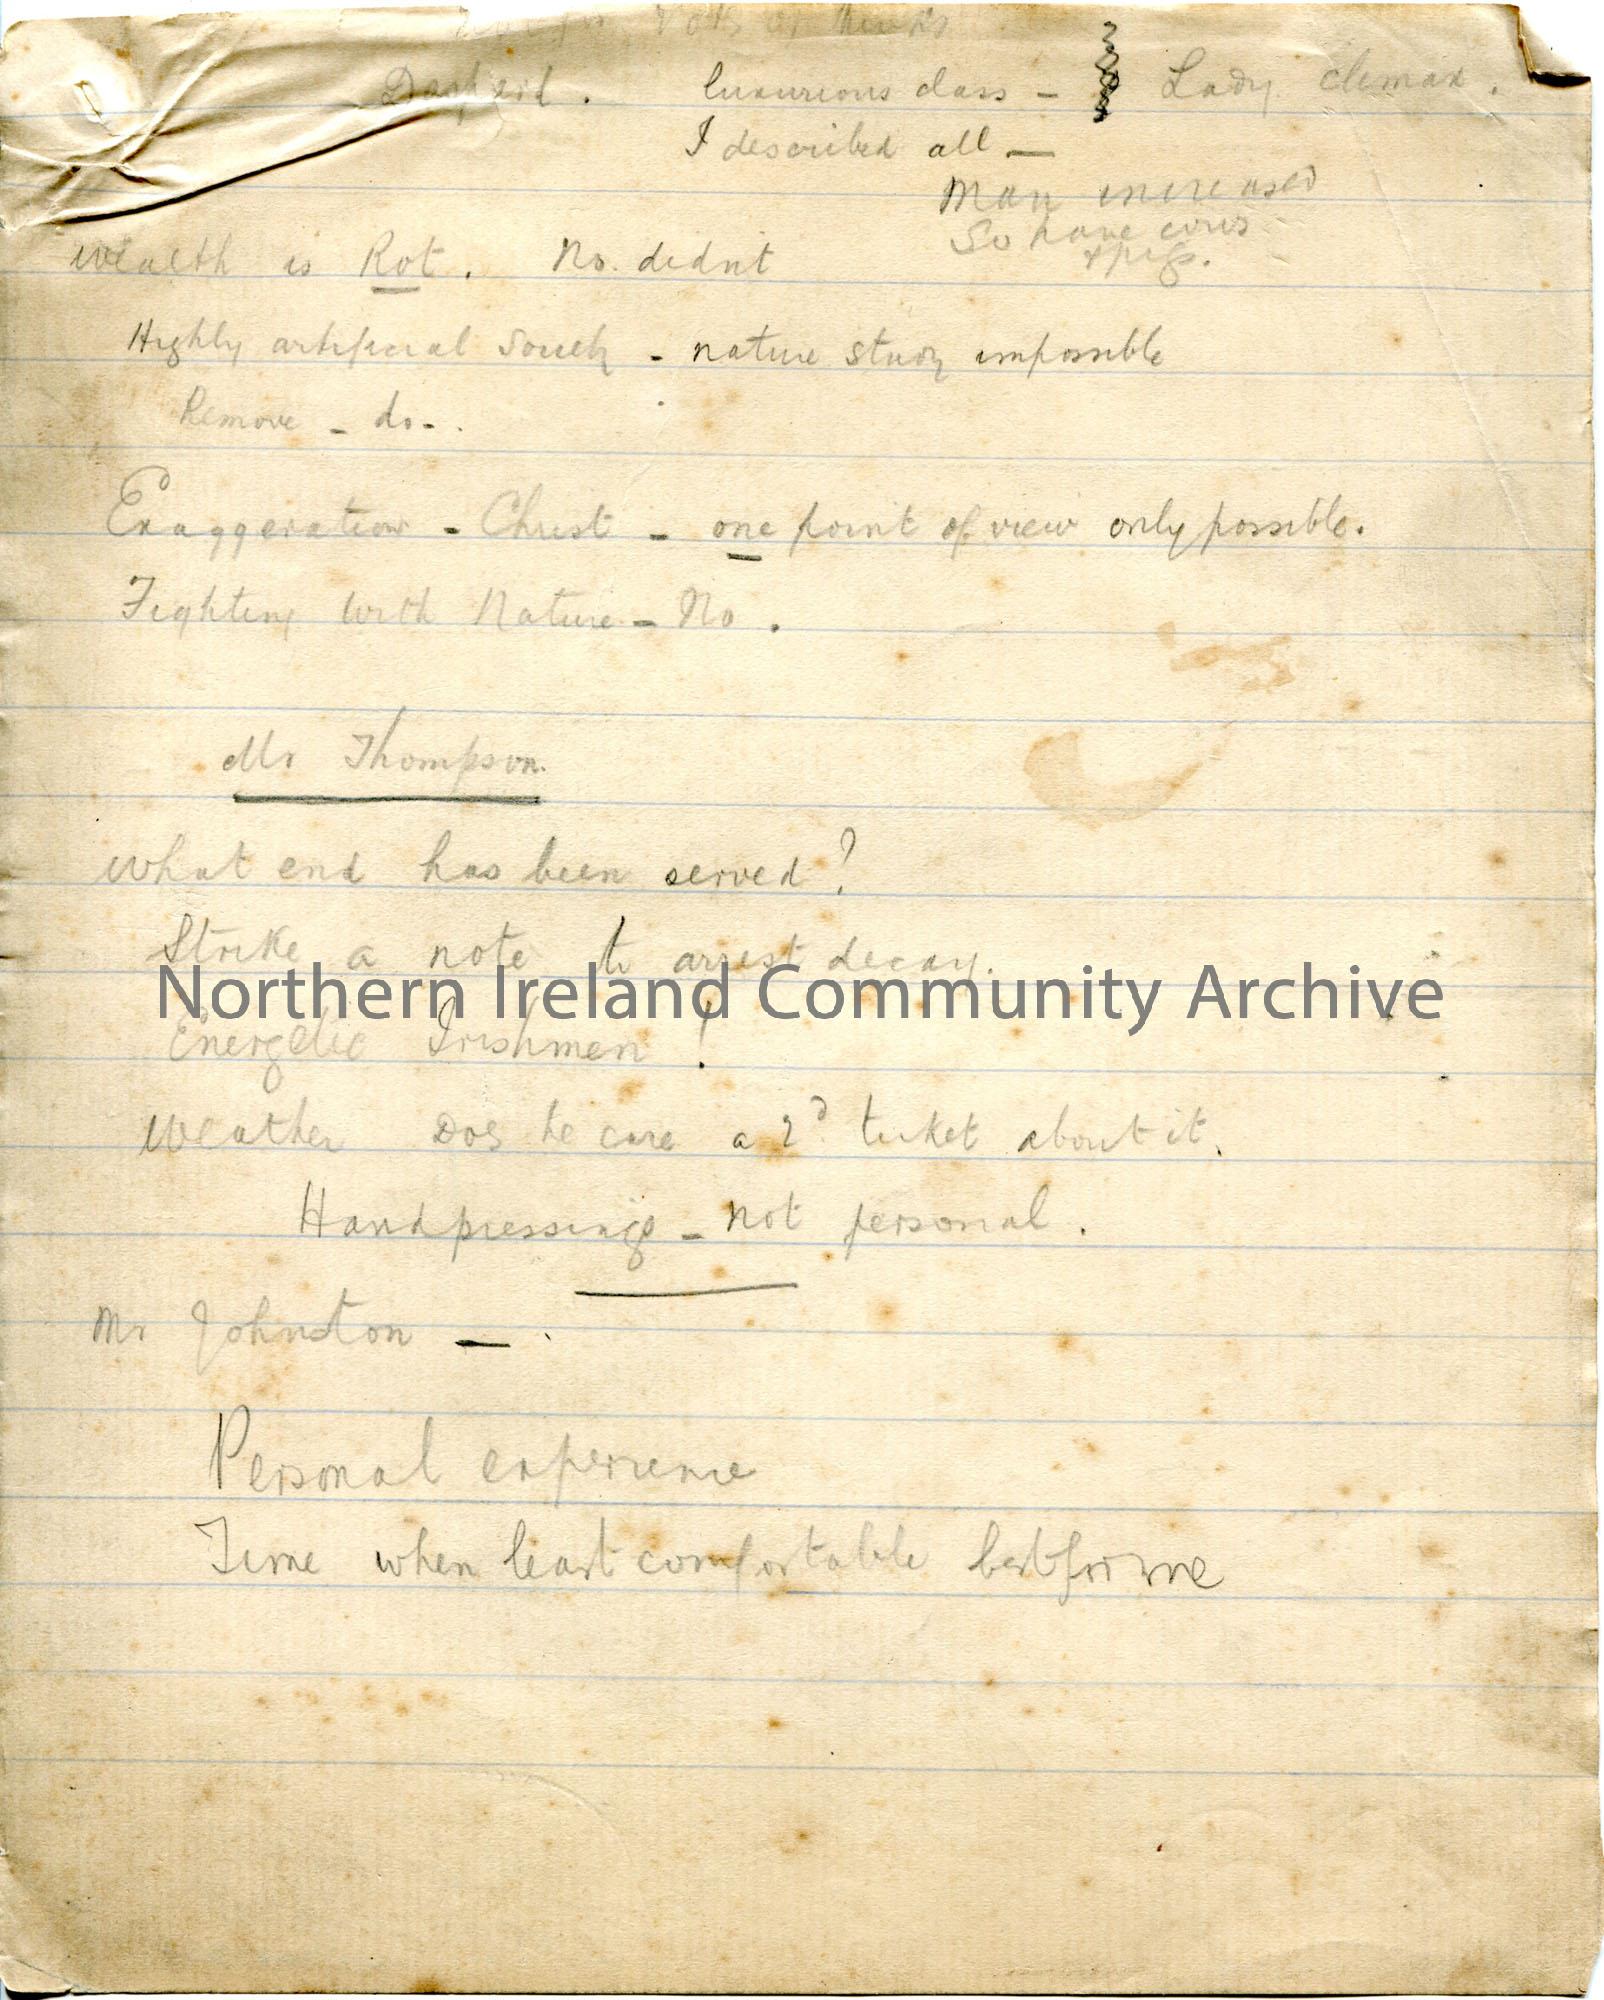 luxurious class - Lady climax.
I described all —
Man increased
So have cows
+ pigs.
Wealth is Rot. No. didn't
Highly artificial Society - nature study impossible
Remove - do - .
Exaggeration - Christ - one point of view only possible.
Fighting with Nature - No.
Mr Thompson.
What end has been served?
Strike a note to arrest decay.
Northern Ireland Community Archive
Energetic Irishmen!
Weather Does he care a 2d ticket about it.
Handpressings - not personal.
Mr Johnston —
Personal experience
Time when least comfortable best for me